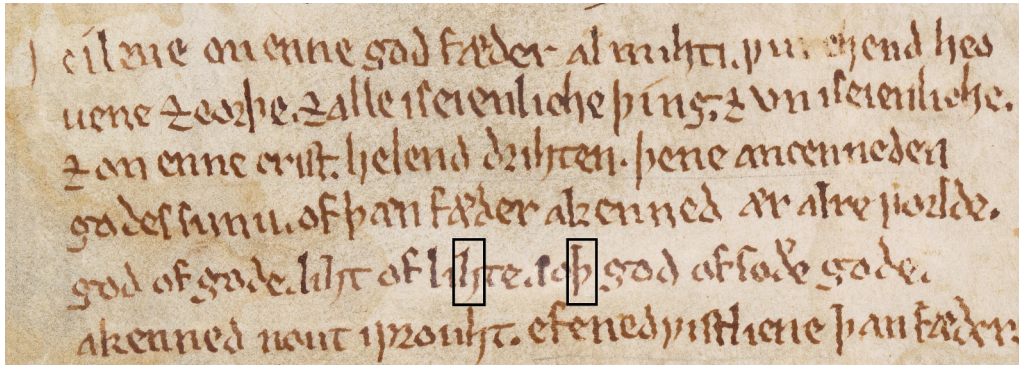 ileue on enne god fæder almihti. ƿurchend heo
uene ⁊ eorþe. ⁊ alle iseienliche þing. ⁊ vn iseienliche.
⁊ on enne crist. helend drihten. þene ancenneden
godes sunu. of þan fæder akenned ær alre ƿorlde.
god of gode. liht of lihte. soþ god of soðe gode.
akenned nout iƿrouht. efenedƿistliene þan fæder.